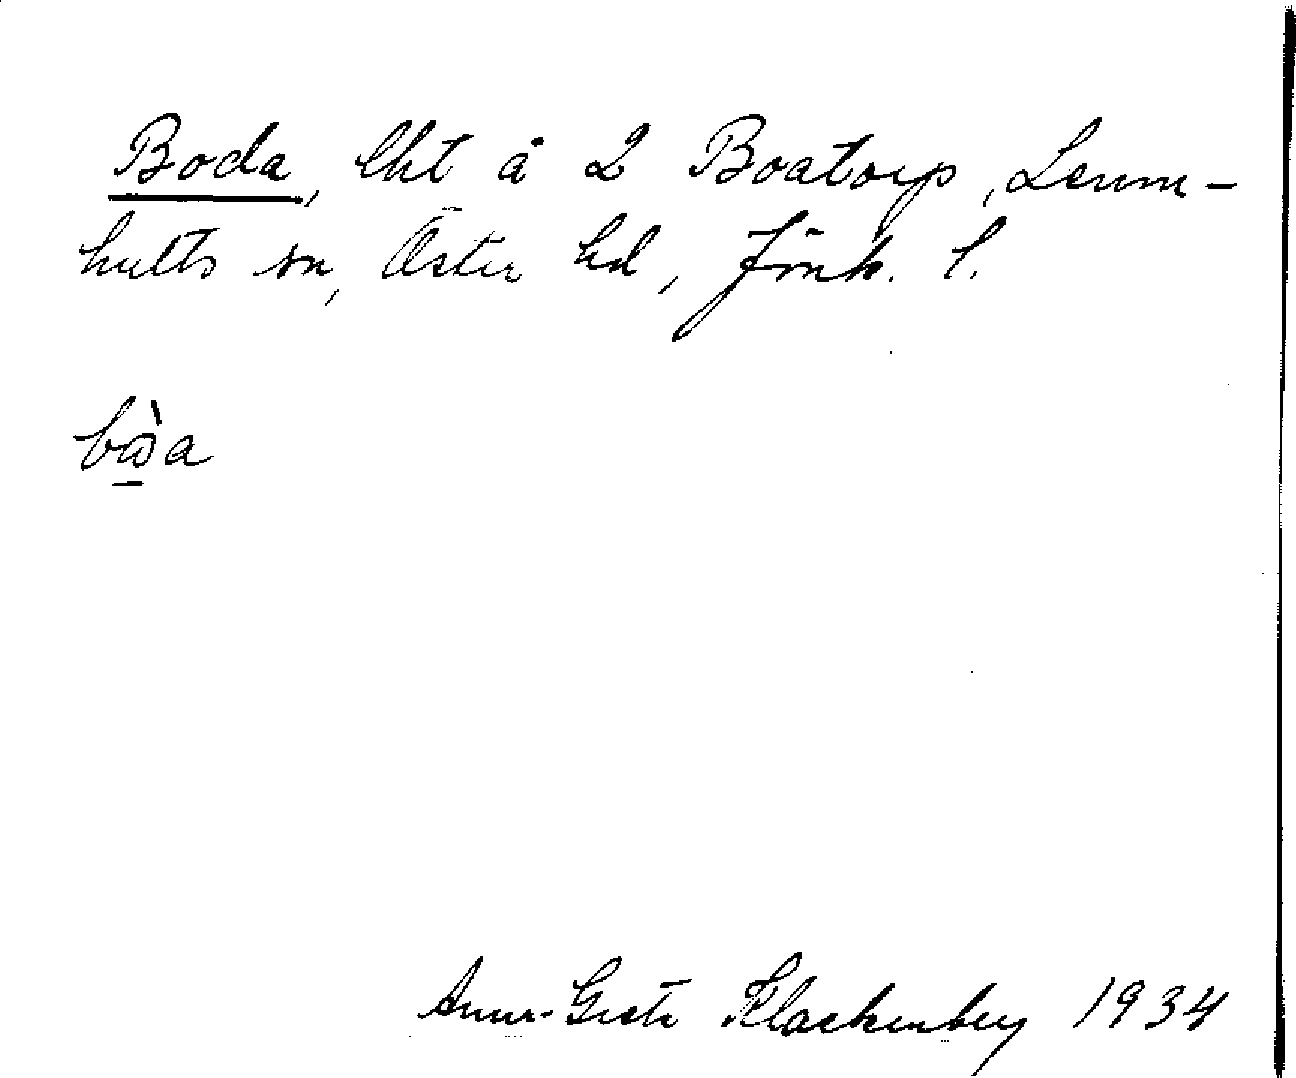 Boda, lht å 2 Boatorp, Lemm-
hults sn, Öster hd, Jönk. l.
bὼa
Anna-Greta Klackenberg 1934